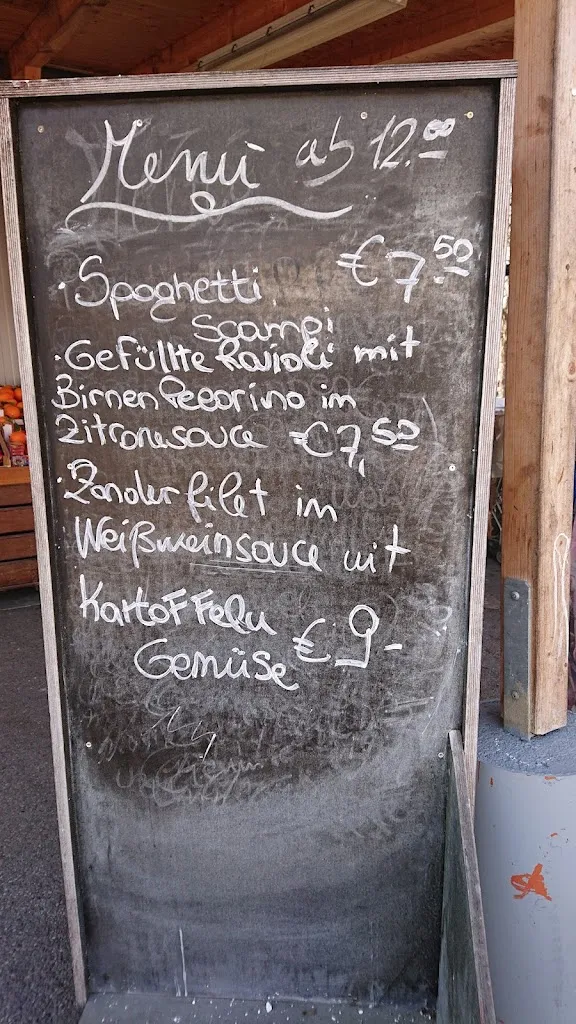 Menü ab 12.00
· Spaghetti €7.50
Scampi
· Gefüllte Ravioli mit
Birnen Pecorino in
Zitronesauce €7,50
· Zanderfilet in
Weißweinsauce mit
Kartoffeln
Gemüse € 9-